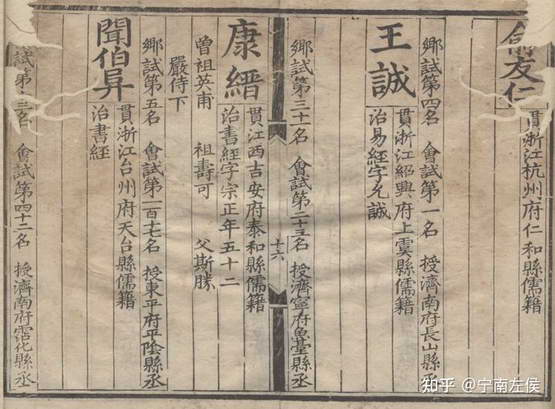 俞友仁
貫浙江杭州府仁和縣儒籍
鄉試第四名 會試第一名 授濟南府長山縣丞
王誠
貫浙江紹興府上虞縣儒籍
治易經字允誠
鄉試第三十一名 會試第二十三名 授濟寧府魚臺縣丞
十六
康縉
貫江西吉安府泰和縣儒籍
治書經字宗正年五十二
曾祖英甫 祖壽可 父斯勝
嚴侍下
鄉試第五名 會試第一百七名 授東平府平陰縣丞
聞伯昇
貫浙江台州府天台縣儒籍
治書經
試第三名 會試第四十二名 授濟南府霑化縣丞
知乎 @宁南左侯